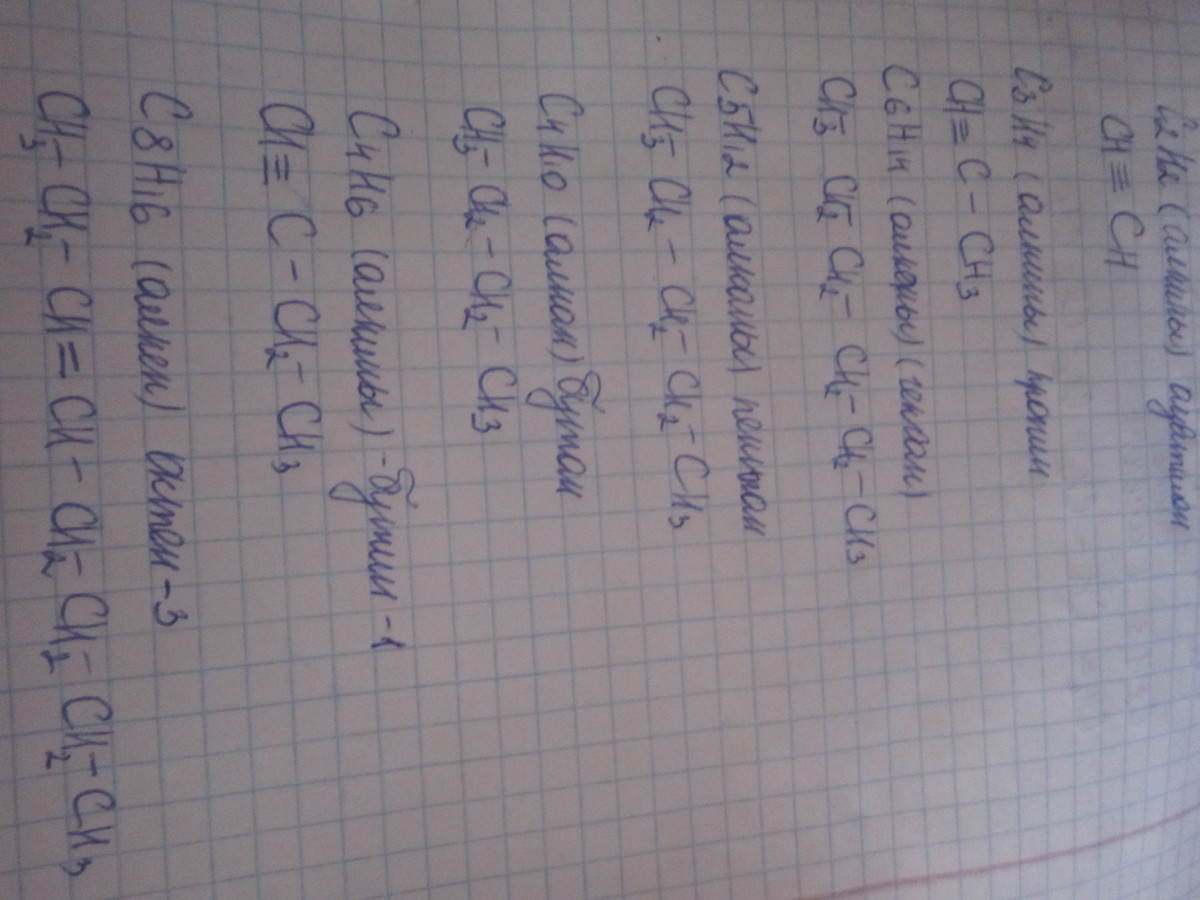 C2H2 (алкины) ацетилен
CH≡CH
C3H4 (алкины) пропин
CH≡C-CH3
C6H14 (алканы) (гексан)
CH3-CH2-CH2-CH2-CH2-CH3
C5H12 (алканы) пентан
CH3-CH2-CH2-CH2-CH3
C4H10 (алкан) бутан
CH3-CH2-CH2-CH3
C4H6 (алкины)-бутин-1
CH≡C-CH2-CH3
C8H16 (алкен) октен-3
CH3-CH2-CH=CH-CH2-CH2-CH2-CH3